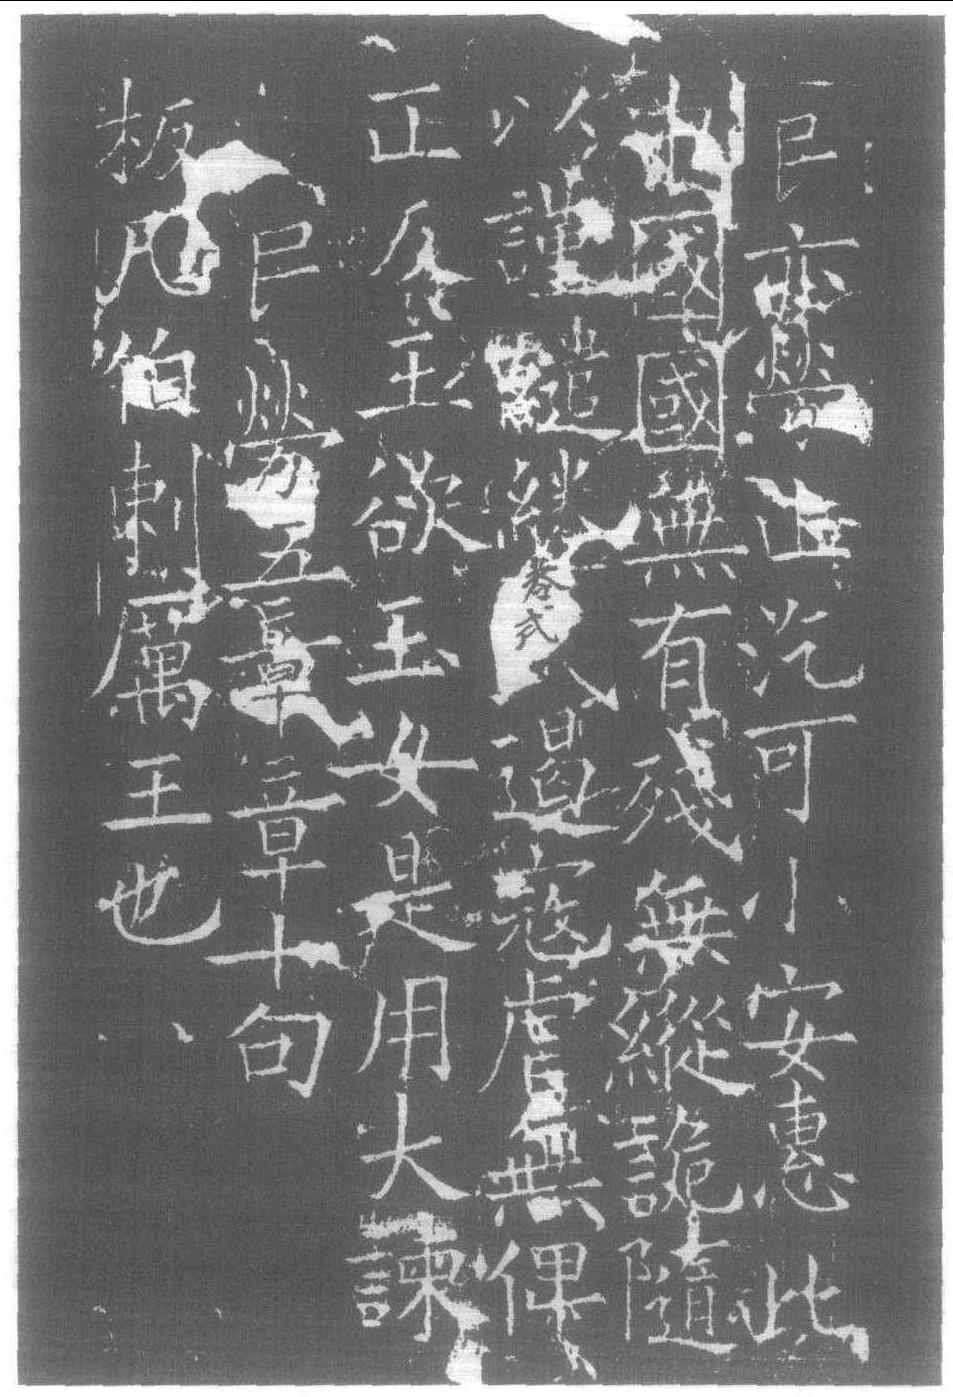 民亦勞止汔可小安惠此
中國國無有殘無縱詭隨
以謹繾綣式遏寇虐無俾
正反王欲玉女是用大諫
民勞五章章十句
板凡伯刺厲王也